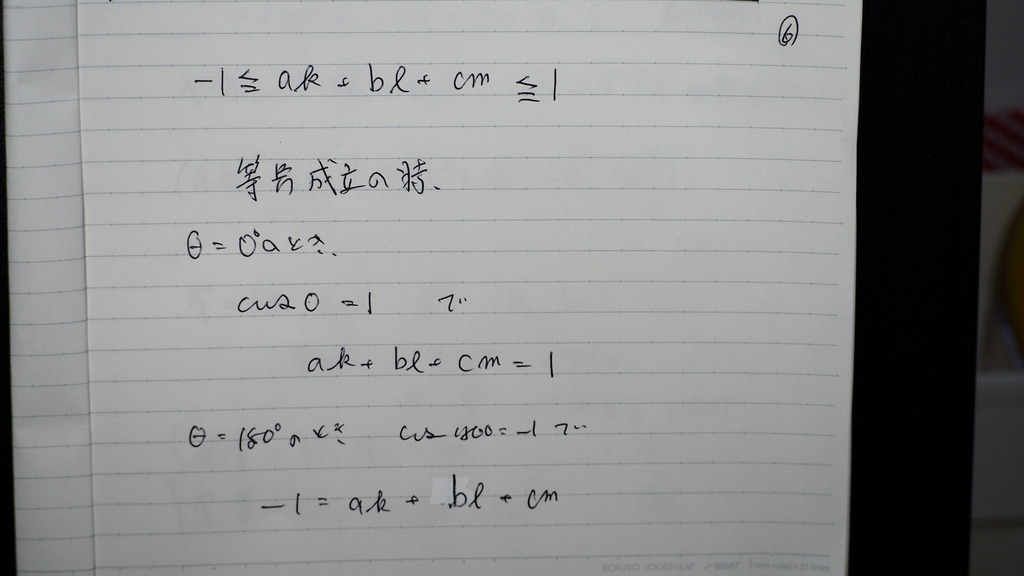 ⑥
-1 ≦ ak + bl + cm ≦ 1
等号成立の時、
θ = 0°のとき、
cos 0 = 1 で
ak + bl + cm = 1
θ = 180°のとき cos 180 = -1 で
-1 = ak + bl + cm